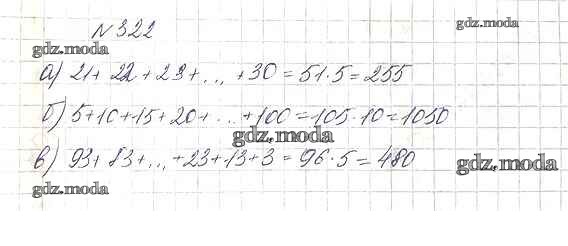 №322
gdz.moda
gdz.moda
а) 21+ 22 + 23 + ... + 30 = 51·5 = 255
б) 5+10+15+20+ ... +100 = 105·10 = 1050
gdz.moda
в) 93+ 83+ ... +23+13+3 = 96·5 = 480
gdz.moda
gdz.moda